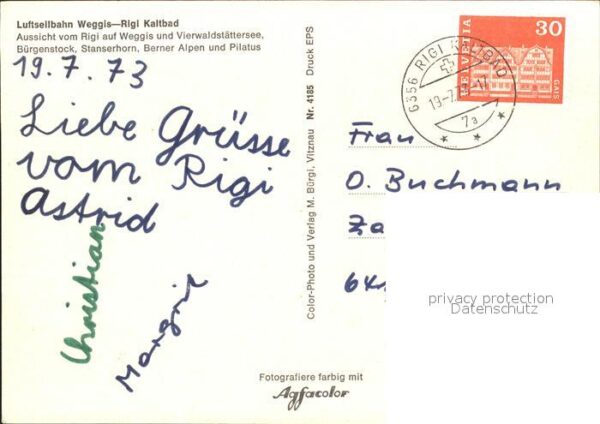 Luftseilbahn Weggis—Rigi Kaltbad
Aussicht vom Rigi auf Weggis und Vierwaldstättersee,
Bürgenstock, Stanserhorn, Berner Alpen und Pilatus
19.7.73
Liebe Grüsse
vom Rigi
Astrid
Christian
Margrit
Color-Photo und Verlag M. Bürgi, Vitznau Nr. 4185 Druck EPS
HELVETIA
30
GAIS
6356 RIGI KALTBAD
2a
Frau
O. Buchmann
Za
64
privacy protection
Datenschutz
Fotografiere farbig mit
Agfacolor